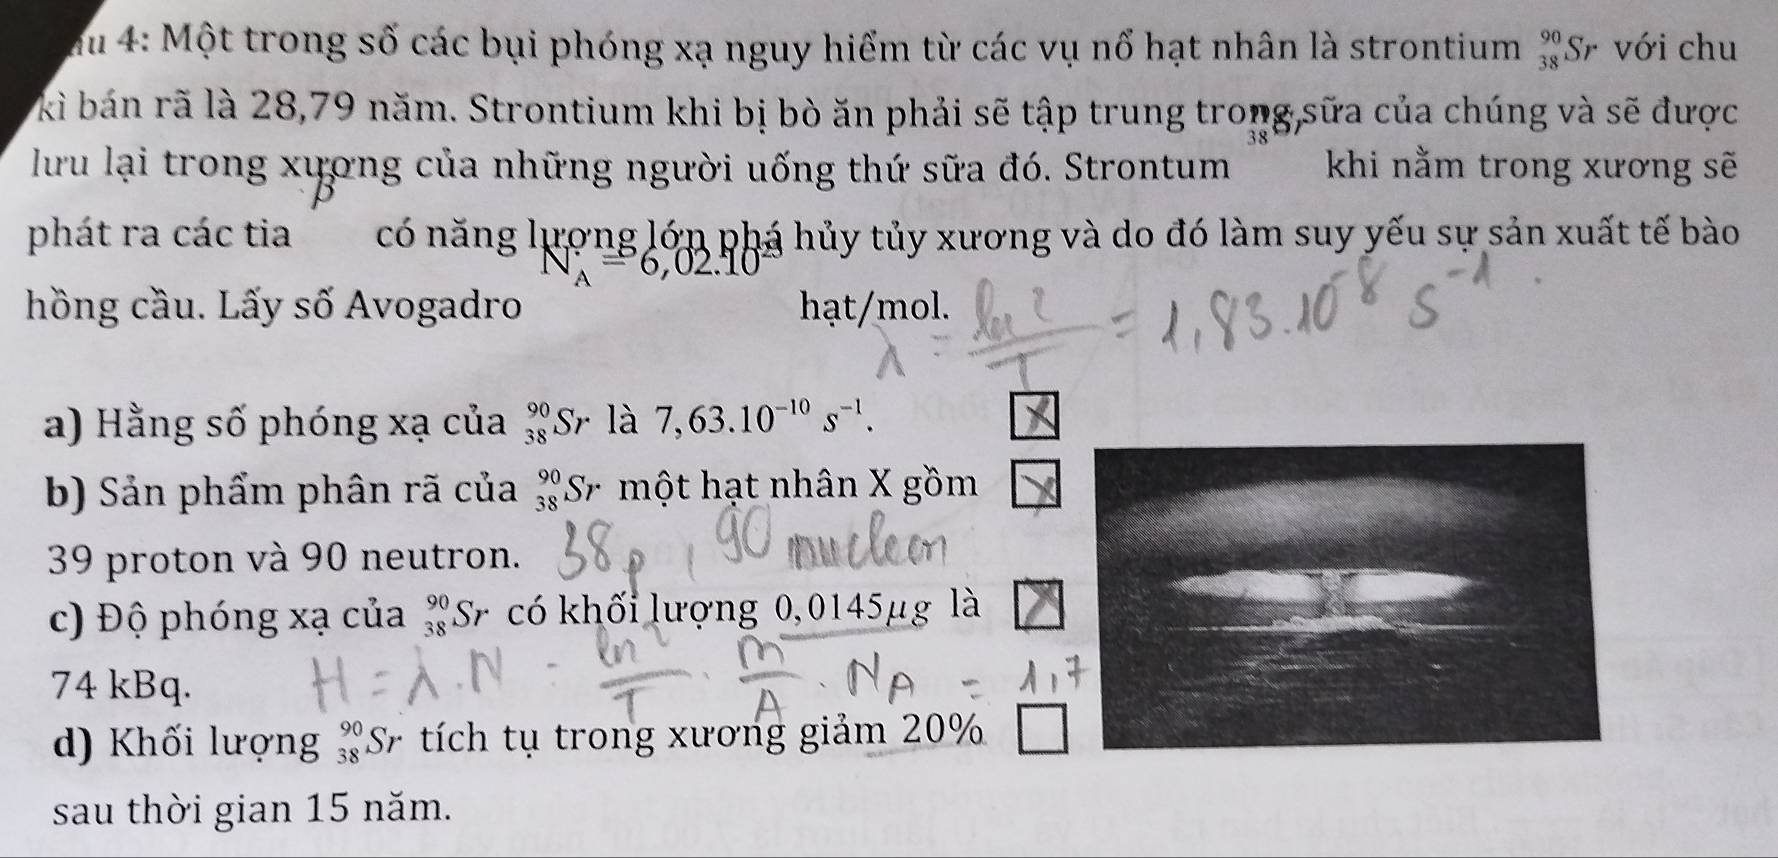 4: Một trong số các bụi phóng xạ nguy hiểm từ các vụ nổ hạt nhân là strontium ⁹⁰₃₈Sr với chu
kì bán rã là 28,79 năm. Strontium khi bị bò ăn phải sẽ tập trung trong sữa của chúng và sẽ được
lưu lại trong xương của những người uống thứ sữa đó. Strontum ₃₈ khi nằm trong xương sẽ
phát ra các tia β có năng lượng lớn phá hủy tủy xương và do đó làm suy yếu sự sản xuất tế bào
hồng cầu. Lấy số Avogadro N_A = 6,02.10²³ hạt/mol.
λ = ln 2 / T = 1,83.10⁻⁸ s⁻¹
a) Hằng số phóng xạ của ⁹⁰₃₈Sr là 7,63.10⁻¹⁰ s⁻¹.
b) Sản phẩm phân rã của ⁹⁰₃₈Sr một hạt nhân X gồm
39 proton và 90 neutron.
38p, 90 nucleon
c) Độ phóng xạ của ⁹⁰₃₈Sr có khối lượng 0,0145μg là
74 kBq.
H = λ.N = ln 2 / T . m / A . N_A = 1,7
d) Khối lượng ⁹⁰₃₈Sr tích tụ trong xương giảm 20%
sau thời gian 15 năm.